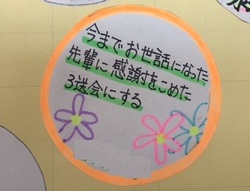 今までお世話になった
先輩に感謝をこめた
3送会にする